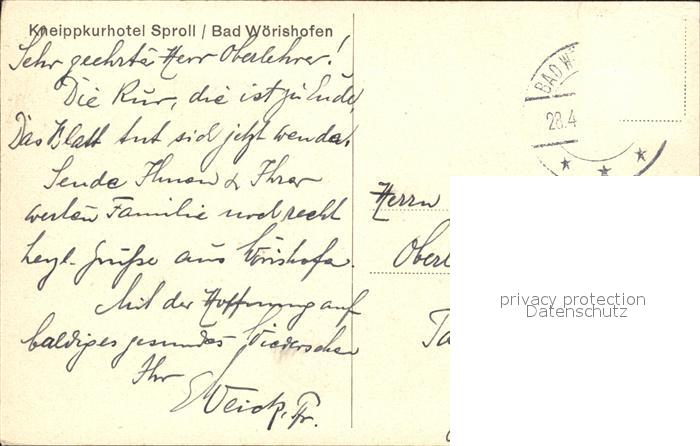 Kneippkurhotel Sproll / Bad Wörishofen
Sehr geehrter Herr Oberlehrer!
Die Kur, die ist zu Ende,
Das Blatt tut sich jetzt wenden.
Sende Ihnen & Ihrer
werten Familie noch recht
herzl. Grüße aus Wörishofen.
Mit der Hoffnung auf
baldiges gesundes Wiedersehen
Ihr
Weick, Fr.
BAD W
28.4
Herrn
Oberl
Ta
privacy protection
Datenschutz